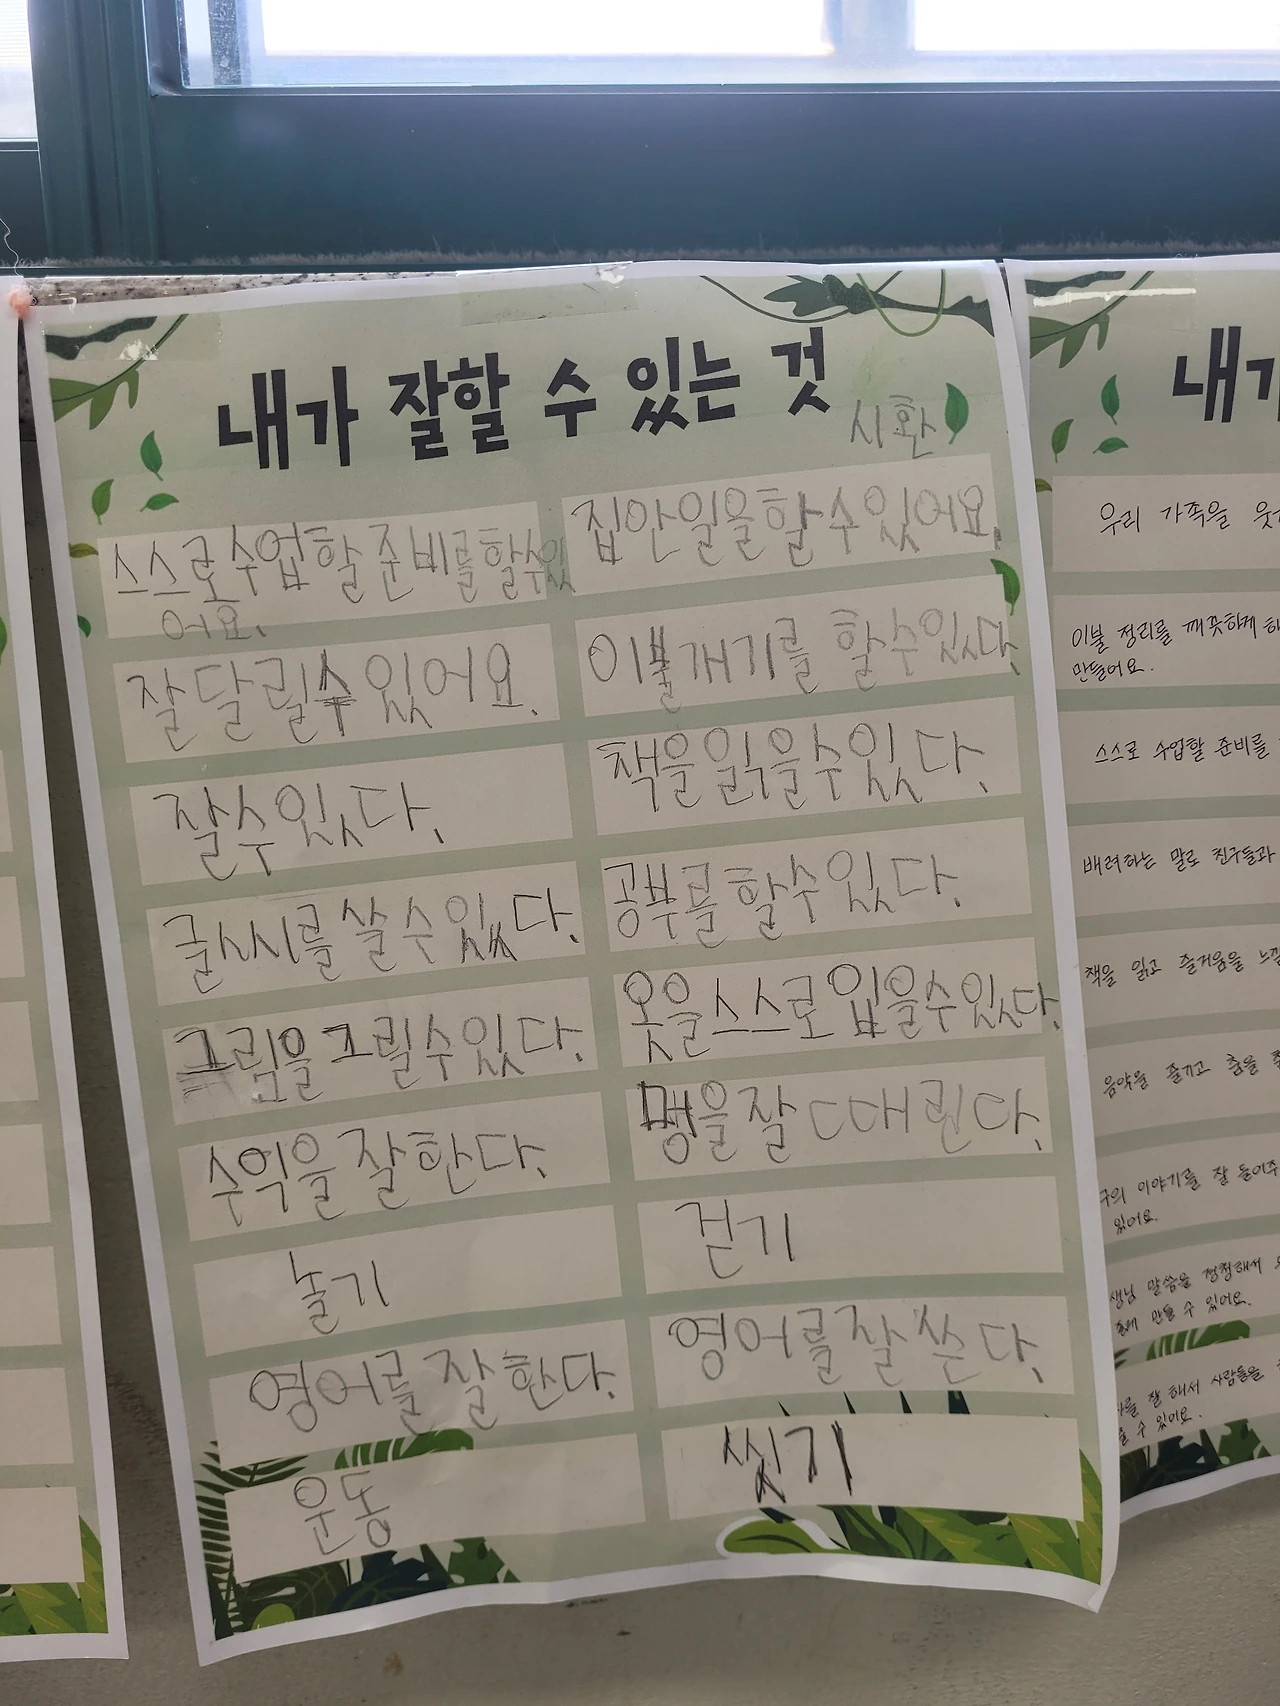 내가 잘할 수 있는 것
시환
스스로 수업할 준비를 할 수 있
어요.
잘 달릴 수 있어요.
잘 수 있다.
글씨를 쓸 수 있다.
그림을 그릴 수 있다.
수익을 잘한다.
놀기
영어를 잘 한다.
운동
집안일을 할 수 있어요.
이불개기를 할 수 있다.
책을 읽을 수 있다.
공부를 할 수 있다.
옷을 스스로 입을 수 있다.
멍을 잘 때린다.
걷기
영어를 잘 쓴다.
씻기
내가
우리 가족을
이불 정리를 깨끗하게
만들어요.
스스로 수업할 준비를
배려하는 말로 친구들과
책을 읽고 즐거움을
음악을 즐기고 춤을
이야기를 잘 들어주
있어요.
말씀을 경청해서
만들 수 있어요.
잘 해서 사람들을
수 있어요.